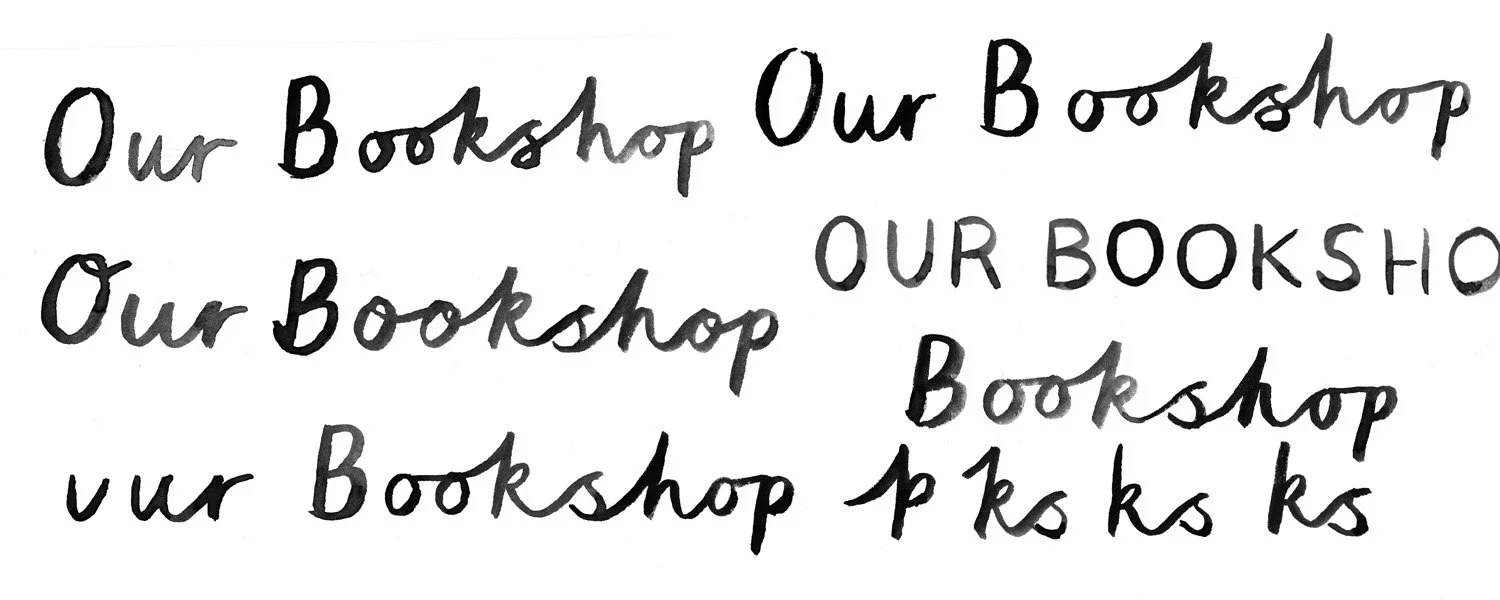 Our Bookshop
Our Bookshop
Our Bookshop
OUR BOOKSHO
Bookshop
vur Bookshop
p ks ks ks